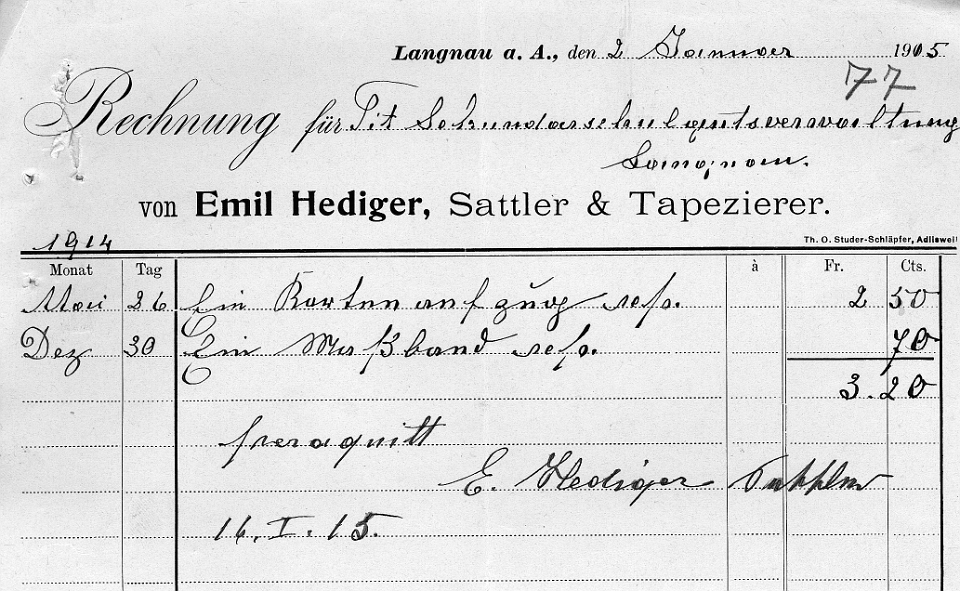 Langnau a. A., den 2 Januar 1915
77
Rechnung für Tit. Sekundarschulgutsverwaltung
Langnau.
von Emil Hediger, Sattler & Tapezierer.
1914
Th. O. Studer-Schläpfer, Adliswil
Monat Tag à Fr. Cts.
Mai 26 Ein Kartenaufzug rep. 2 50
Dez 30 Ein Maßband rep. 70
3.20
E. Hediger Sattler
16. I. 15.